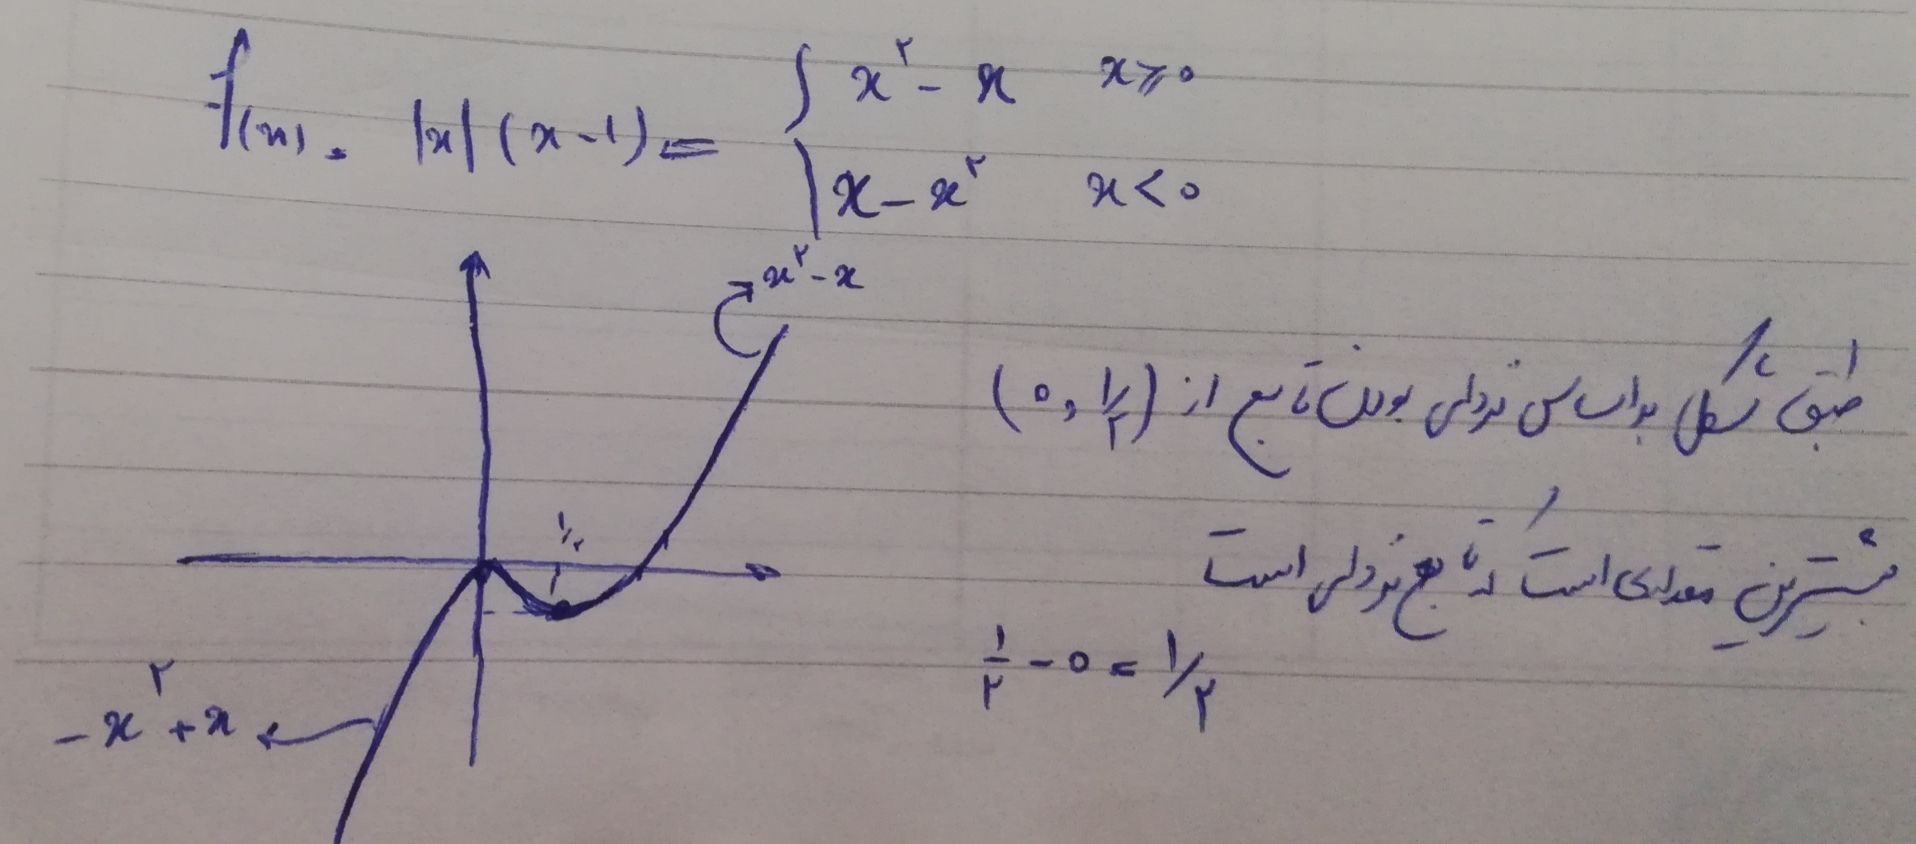 f(x) = |x| (x-1) = { x² - x   x ≥ 0
x - x²   x < 0
x² - x
طبق شکل براساس نزولی بودن تابع از (۰, ۱/۲)
بیشترین مقداری است که تابع نزولی است
۱/۲
۱/۲ - ۰ = ۱/۲
-x² + x